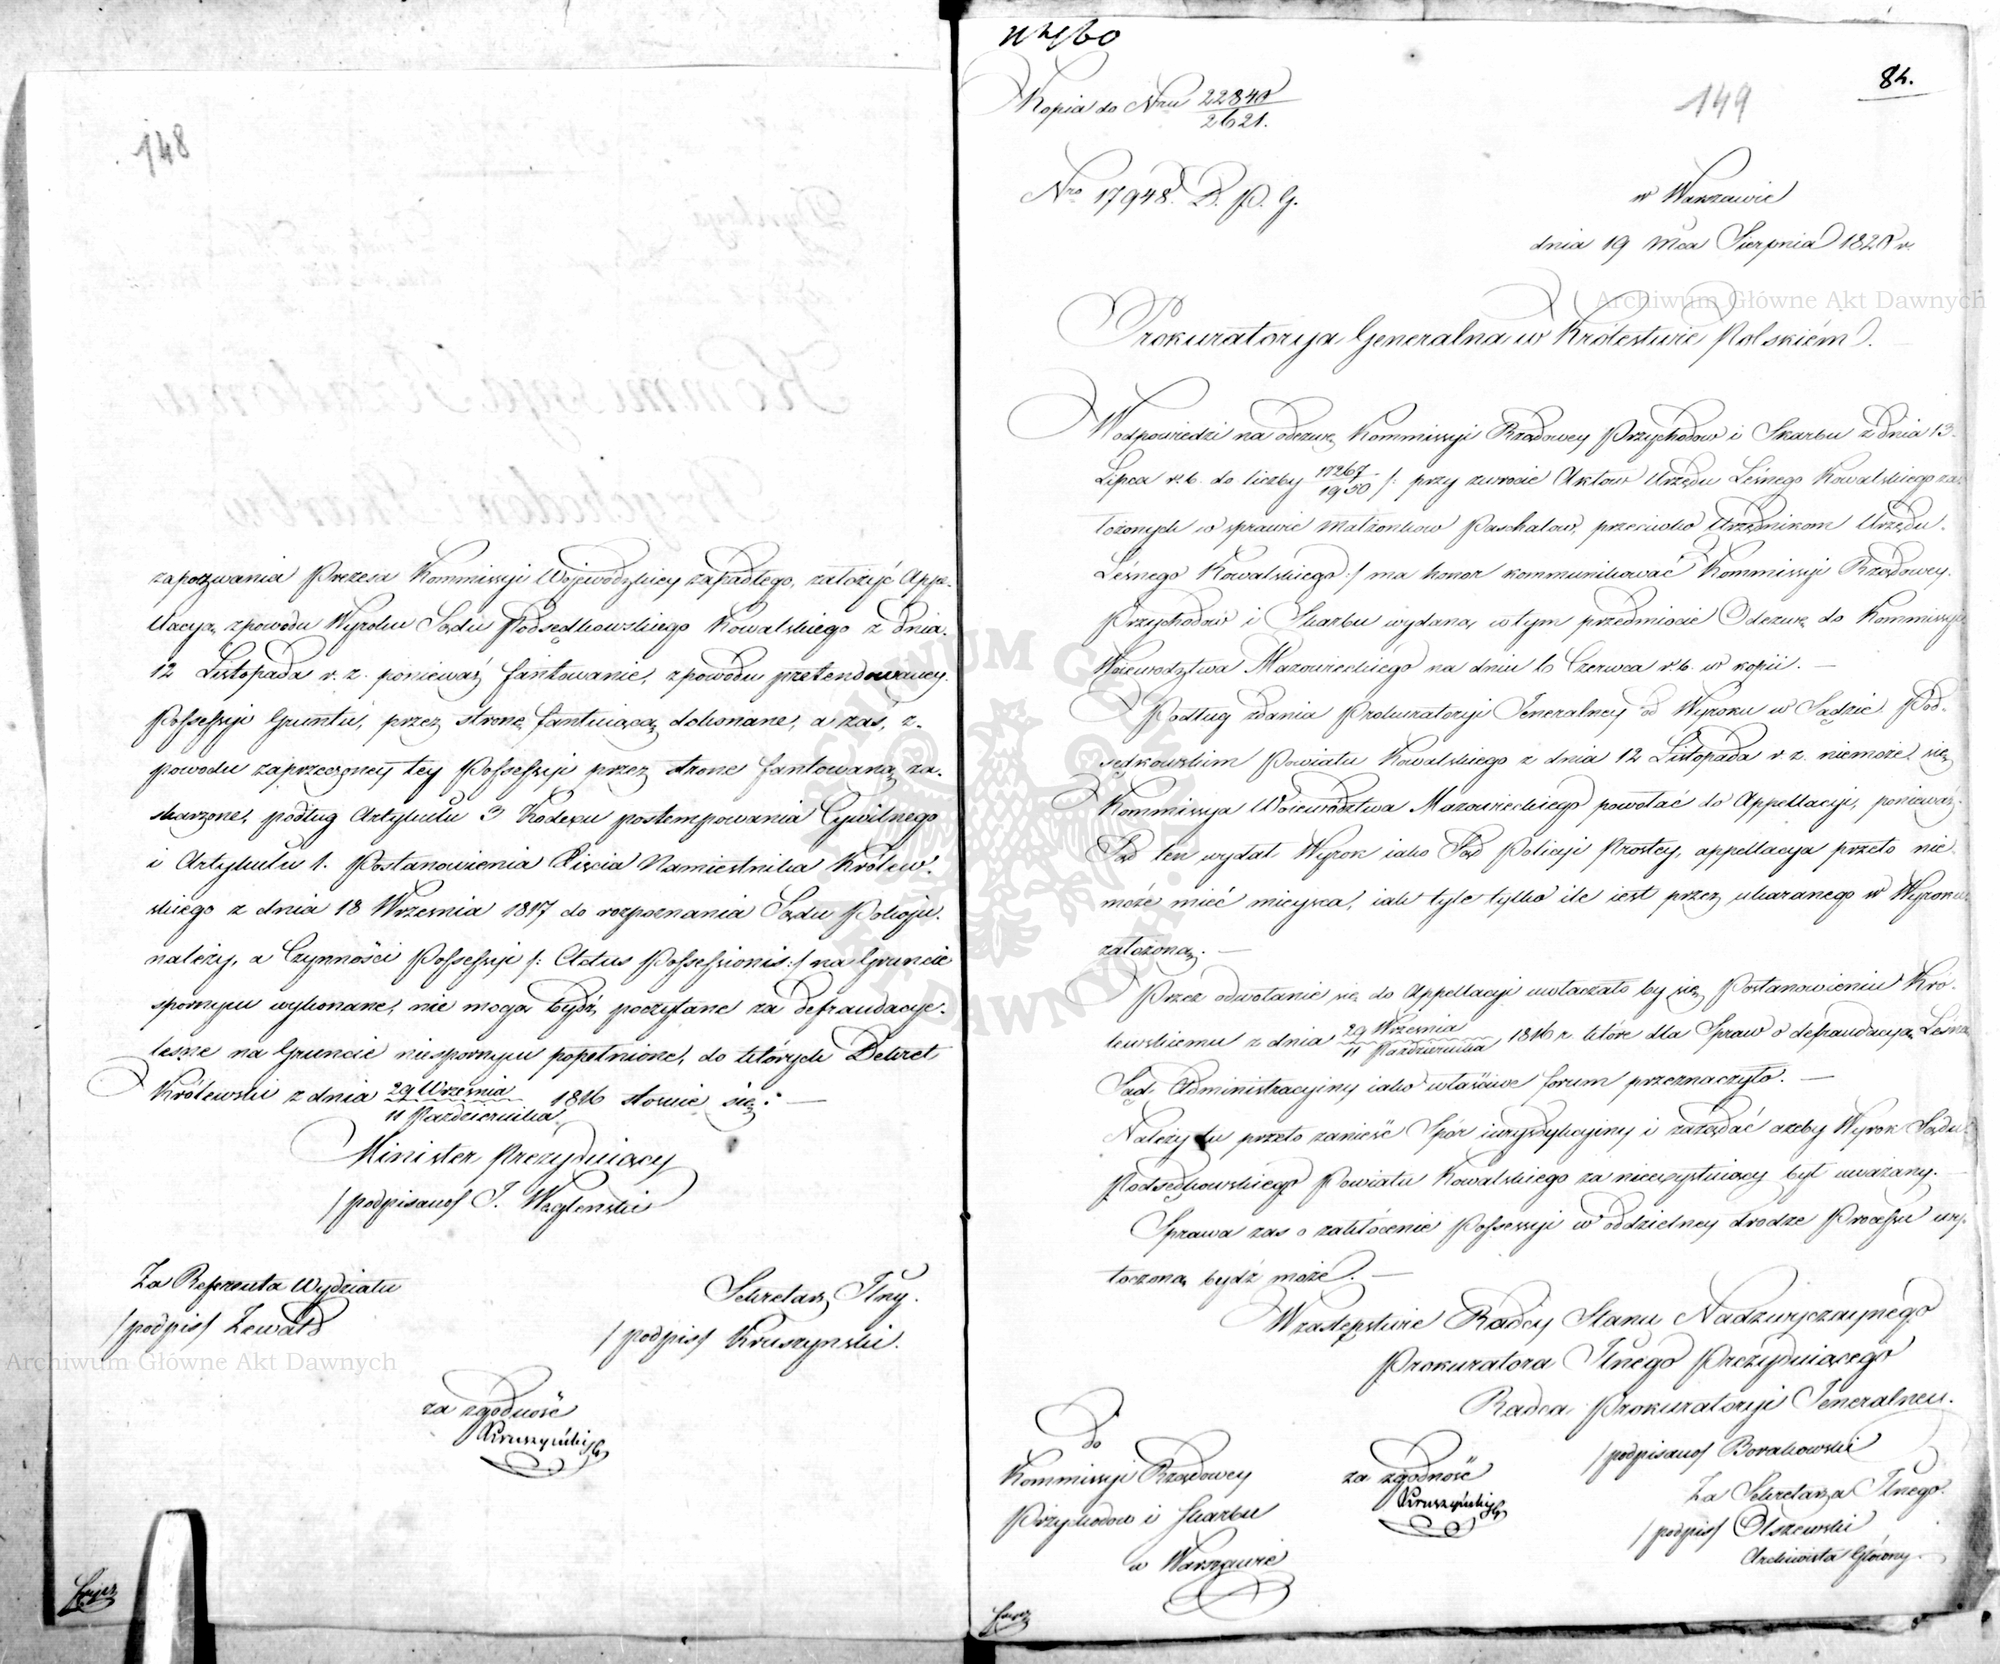 148
zapozwania Prezesa Kommissyi Wojewodzkiey zapadłego, założyć Appel-
lacyą z powodu Wyroku Sądu Podsędkowskiego Kowalskiego z dnia
12 Listopada r. z. ponieważ fantowanie, z powodu pretendowaney
Possessyi Gruntu, przez stronę fantuiącą dokonane, a zaś, z
powodu zaprzeczoney tey Possessyi przez stronę fantowaną za-
skarzone, podług Artykułu 3 Kodexu postempowania Cywilnego
i Artykułu 1. Postanowienia Xięcia Namiestnika Królew-
skiego z dnia 18 Września 1817 do rozpoznania Sądu Pokoju
należy, a Czynności Possessyi /: Actus Possessionis :/ na Gruncie
spornym wykonane, nie mogą bydź poczytane za defraudacye
leśne na Gruncie niespornym popełnione, do których Dekret
Królewski z dnia 29 Września / 11 Października 1816 stosuie się. —
Minister Prezyduiący
/podpisano/ J. Węgleński
Za Referenta Wydziału
/podpis/ Lewald
Sekretarz Jlny.
/podpis/ Kruszyński.
za zgodność
Kruszyński
Kopia do Nru 22840/2621.
149
84.
Nro 17948. D. P. G.
w Warszawie
dnia 19 Mca Sierpnia 1820 r.
Prokuratorya Generalna w Królestwie Polskiém.
W odpowiedzi na odezwę Kommissyi Rządowey Przychodow i Skarbu z dnia 13
Lipca r. b. do liczby 17267/1950 /: przy zwrocie Aktow Urzędu Leśnego Kowalskiego za-
łożonych w sprawie Małżonkow Paschalow, przeciwko Urzędnikom Urzędu
Leśnego Kowalskiego :/ ma honor kommunikować Kommissyi Rządowey
Przychodów i Skarbu wydaną w tym przedmiocie Odezwę do Kommissyi
Woiewodztwa Mazowieckiego na dniu 6 Czerwca r. b. w kopii. —
Podług zdania Prokuratoryi Jeneralney od Wyroku w Sądzie Pod-
sędkowskim Powiatu Kowalskiego z dnia 12 Listopada r. z. niemoże się
Kommissya Woiewodztwa Mazowieckiego powołać do Appellacyi, ponieważ
Sąd ten wydał Wyrok iako Sąd Policyi Prostey, appellacya przeto nie
może mieć mieysca, iak tyle tylko ile iest przez ukaranego w Wyroku
założoną. —
Przez odwołanie się do Appellacyi uwłaczało by się Postanowieniu Kró-
lewskiemu z dnia 29 Września / 11 Października 1816 r. które dla Spraw o defraudacyą Leśną
Sąd Administracyiny iako właściwe forum przeznaczyło. —
Należy tu przeto zanieść Spór iurysdykcyiny i zażądać ażeby Wyrok Sądu
Podsędkowskiego Powiatu Kowalskiego za nieexystuiący był uważany. —
Sprawa zas o zakłócenie Possessyi w oddzielney drodze Processu wy-
toczoną bydź może. —
W zastępstwie Radcy Stanu Nadzwyczaynego
Prokuratora Jlnego Prezyduiącego
Radca Prokuratoryi Jeneralney.
/podpisano/ Borakowski
Za Sekretarza Jlnego.
/podpis/ Olszewski
Archiwista Główny.
Do
Kommissyi Rządowey
Przychodow i Skarbu
w Warszawie
za zgodność
Kruszyński
Archiwum Główne Akt Dawnych
Archiwum Główne Akt Dawnych